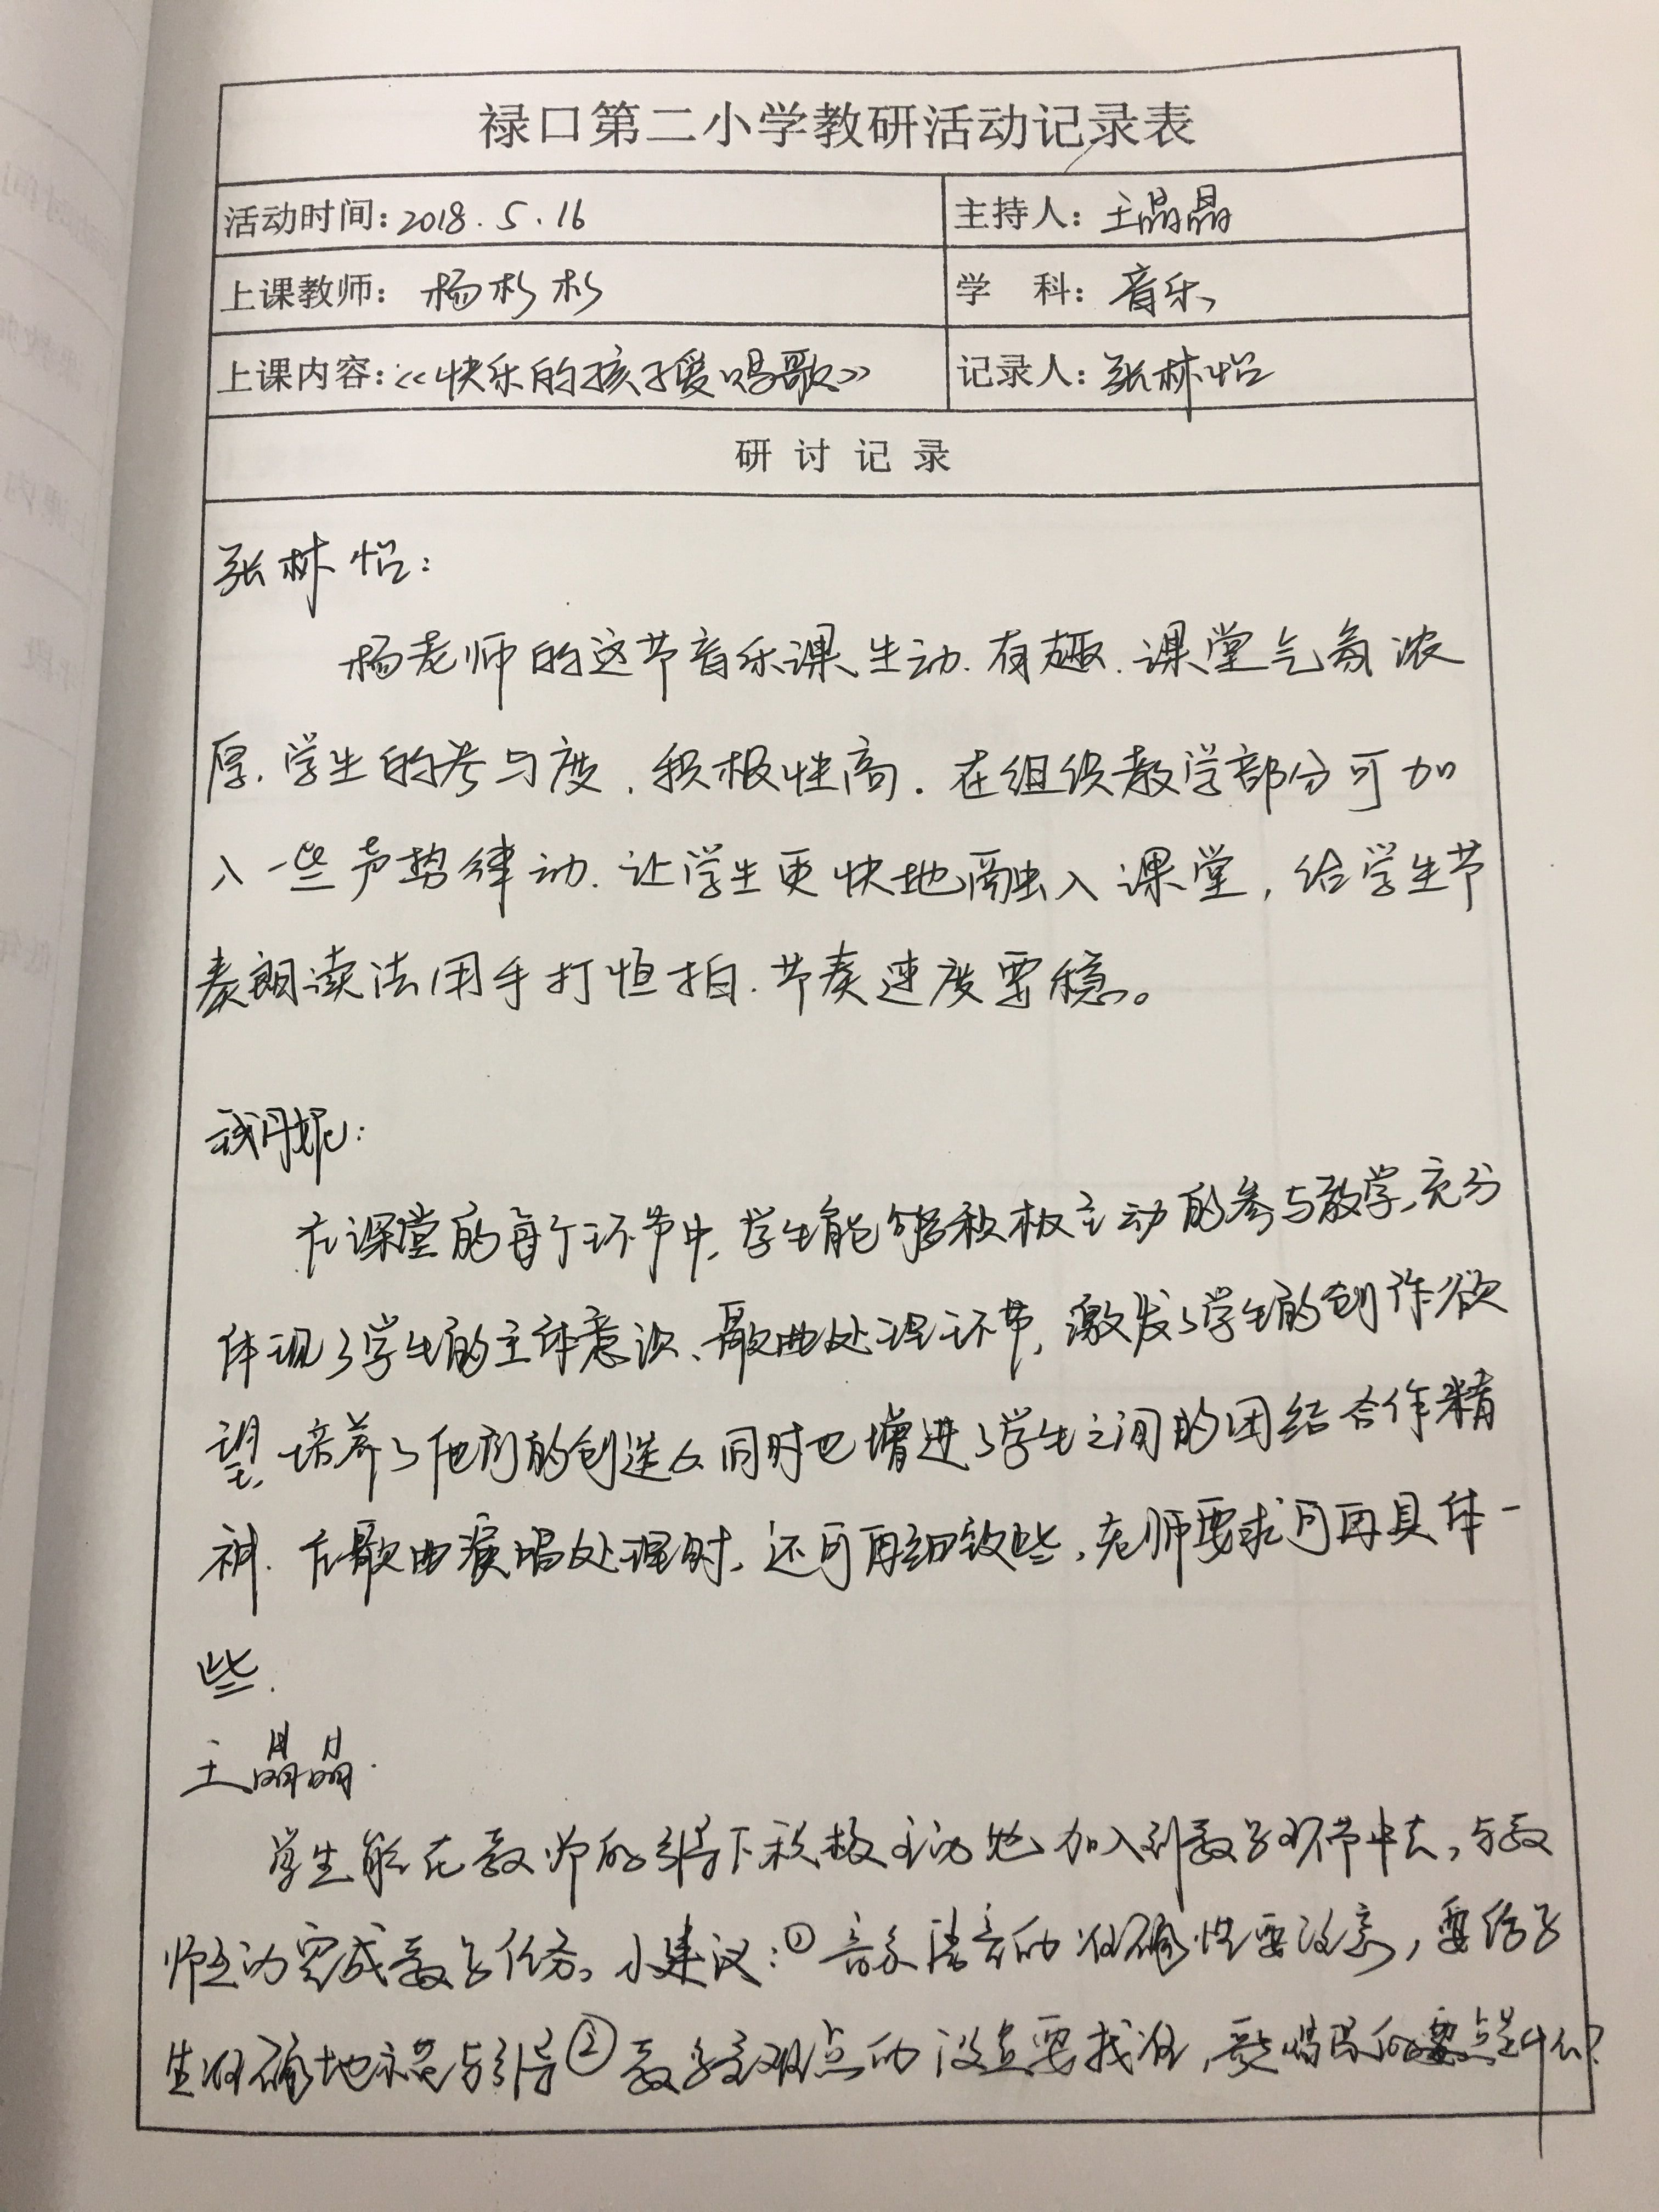 禄口第二小学教研活动记录表
活动时间：2018.5.16
主持人：王晶晶
上课教师：杨杉杉
学 科：音乐
上课内容：《快乐的孩子爱唱歌》
记录人：张林怡
研讨记录
张林怡：
杨老师的这节音乐课生动.有趣.课堂气氛浓
厚.学生的参与度.积极性高.在组织教学部分可加
入一些声势律动.让学生更快地融入课堂，给学生节
奏朗读法用手打恒拍.节奏速度要稳。
丹妮：
在课堂的每个环节中,学生能够积极主动的参与教学,充分
体现了学生的主体意识、歌曲处理环节,激发了学生的创作欲
望,培养了他们的创造力.同时也增进了学生之间的团结合作精
神.在歌曲演唱处理时,还可再细致些,老师要求可再具体一
些.
王晶晶.
学生能在教师的引导下积极主动地加入到教学环节中去,与教
师互动完成教学任务。小建议:①音乐语言的准确性要改善,要给学
生准确地示范与引导②教学重难点的设定要找准,要点是什么?